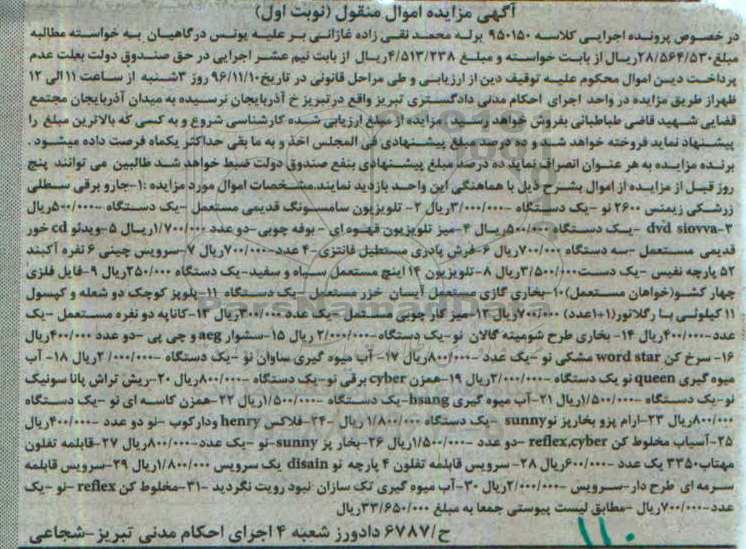 آگهی مزایده اموال منقول (نوبت اول)
در خصوص پرونده اجرایی کلاسه ۹۵۰۱۵۰ برله محمد نقی زاده غازانی بر علیه یونس درگاهیان به خواسته مطالبه
مبلغ ۲۸/۵۶۴/۵۳۰ریال از بابت خواسته و مبلغ ۴/۵۱۳/۲۳۸ریال از بابت نیم عشر اجرایی در حق صندوق دولت بعلت عدم
پرداخت دین اموال محکوم علیه توقیف دین از ارزیابی و طی مراحل قانونی در تاریخ۹۶/۱۱/۱۰ روز ۳شنبه از ساعت ۱۱الی ۱۲
ظهراز طریق مزایده در واحد اجرای احکام مدنی دادگستری تبریز واقع درتبریز خ آذربایجان نرسیده به میدان آذربایجان مجتمع
قضایی شهید قاضی طباطبائی بفروش خواهد رسید مزایده از مبلغ ارزیابی شده کارشناسی شروع و به کسی که بالاترین مبلغ را
پیشنهاد نماید فروخته خواهد شد و ده درصد مبلغ پیشنهادی فی المجلس اخذ و به ما بقی حداکثر یکماه فرصت داده میشود .
برنده مزایده به هر عنوان انصراف نماید ده درصد مبلغ پیشنهادی بنفع صندوق دولت ضبط خواهد شد طالبین می توانند پنج
روز قبل از مزایده از اموال بشرح ذیل با هماهنگی این واحد بازدید نمایند.مشخصات اموال مورد مزایده :۱-جارو برقی سطلی
زرشکی زیمنس ۲۶۰۰ نو -یک دستگاه -۳/۰۰۰/۰۰۰ریال ۲- تلویزیون سامسونگ قدیمی مستعمل -یک دستگاه -۵۰۰/۰۰۰ریال
۳-dvd siovva -یک دستگاه ۵۰۰/۰۰۰ریال ۴-میز تلویزیون قهوه ای - بوفه چوبی-دو عدد ۱/۷۰۰/۰۰۰ریال ۵-ویدئو cd خور
قدیمی مستعمل -سه دستگاه ۷۰۰/۰۰۰ریال ۶-فرش پادری مستطیل فانتزی-۴ عدد-۷۰۰/۰۰۰ریال ۷-سرویس چینی ۶ نفره آکبند
۵۲ پارچه نفیس -یک دست۳/۵۰۰/۰۰۰ریال ۸-تلویزیون ۱۴ اینچ مستعمل سیاه و سفید-یک دستگاه ۲۵۰/۰۰۰ریال ۹-فایل فلزی
چهار کشو(خواهان مستعمل)۱۰-بخاری گازی مستعمل آبسان خزر مستعمل -یک دستگاه ۱۱-پلوپز کوچک دو شعله و کپسول
۱۱ کیلوئی با رگلاتور(۱+۱عدد) ۷۰۰/۰۰۰ریال ۱۲-میز کار چوبی مستعمل -یک عدد ۳۰۰/۰۰۰ریال ۱۳-کاناپه دو نفره مستعمل -یک
عدد-۴۰۰/۰۰۰ریال ۱۴- بخاری طرح شومینه گالان نو -یک دستگاه -۲/۰۰۰/۰۰۰ ریال ۱۵-سشوار aeg و جی پی -دو عدد ۴۰۰/۰۰۰ریال
۱۶- سرخ کن word star مشکی نو -یک عدد -۸۰۰/۰۰۰ریال ۱۷- آب میوه گیری ساوان نو -یک دستگاه -۲/۰۰۰/۰۰۰ریال ۱۸- آب
میوه گیری queen نو یک دستگاه -۲/۰۰۰/۰۰۰ریال ۱۹-همزن cyber برقی نو-یک دستگاه -۸۰۰/۰۰۰ریال ۲۰-ریش تراش پانا سونیک
نو-یک دستگاه -۱/۵۰۰/۰۰۰ریال ۲۱-آب میوه گیری hsang-یک دستگاه -۱/۵۰۰/۰۰۰ریال ۲۲-همزن کاسه ای نو -یک دستگاه
۸۰۰/۰۰۰ریال ۲۳-ارام پزو بخارپز نوsunny -یک دستگاه ۱/۸۰۰/۰۰۰ ریال -۲۴-فلاکس henry ودارکوب -نو دو عدد -۴۰۰/۰۰۰ریال
۲۵-آسیاب مخلوط کن reflex,cyber -دو عدد -۱/۵۰۰/۰۰۰ریال ۲۶-بخار پز sunny-نو -یک عدد-۸۰۰/۰۰۰ریال ۲۷-قابلمه تفلون
مهتاب۳۳۵۰ یک عدد -۶۰۰/۰۰۰ریال ۲۸- سرویس قابلمه تفلون ۴ پارچه نو disain یک سرویس ۱/۸۰۰/۰۰۰ریال ۲۹-سرویس قابلمه
سرمه ای طرح دار-سرویس -۲/۰۰۰/۰۰۰ریال ۳۰-آب میوه گیری تک سازان نبود رویت نگردید -۳۱-مخلوط کن reflex -نو -یک
عدد-۷۰۰/۰۰۰ریال -مطابق لیست پیوستی جمعا به مبلغ ۳۳/۶۵۰/۰۰۰ریال
ح/۶۷۸۷ دادورز شعبه ۴ اجرای احکام مدنی تبریز-شجاعی
۱۱۰